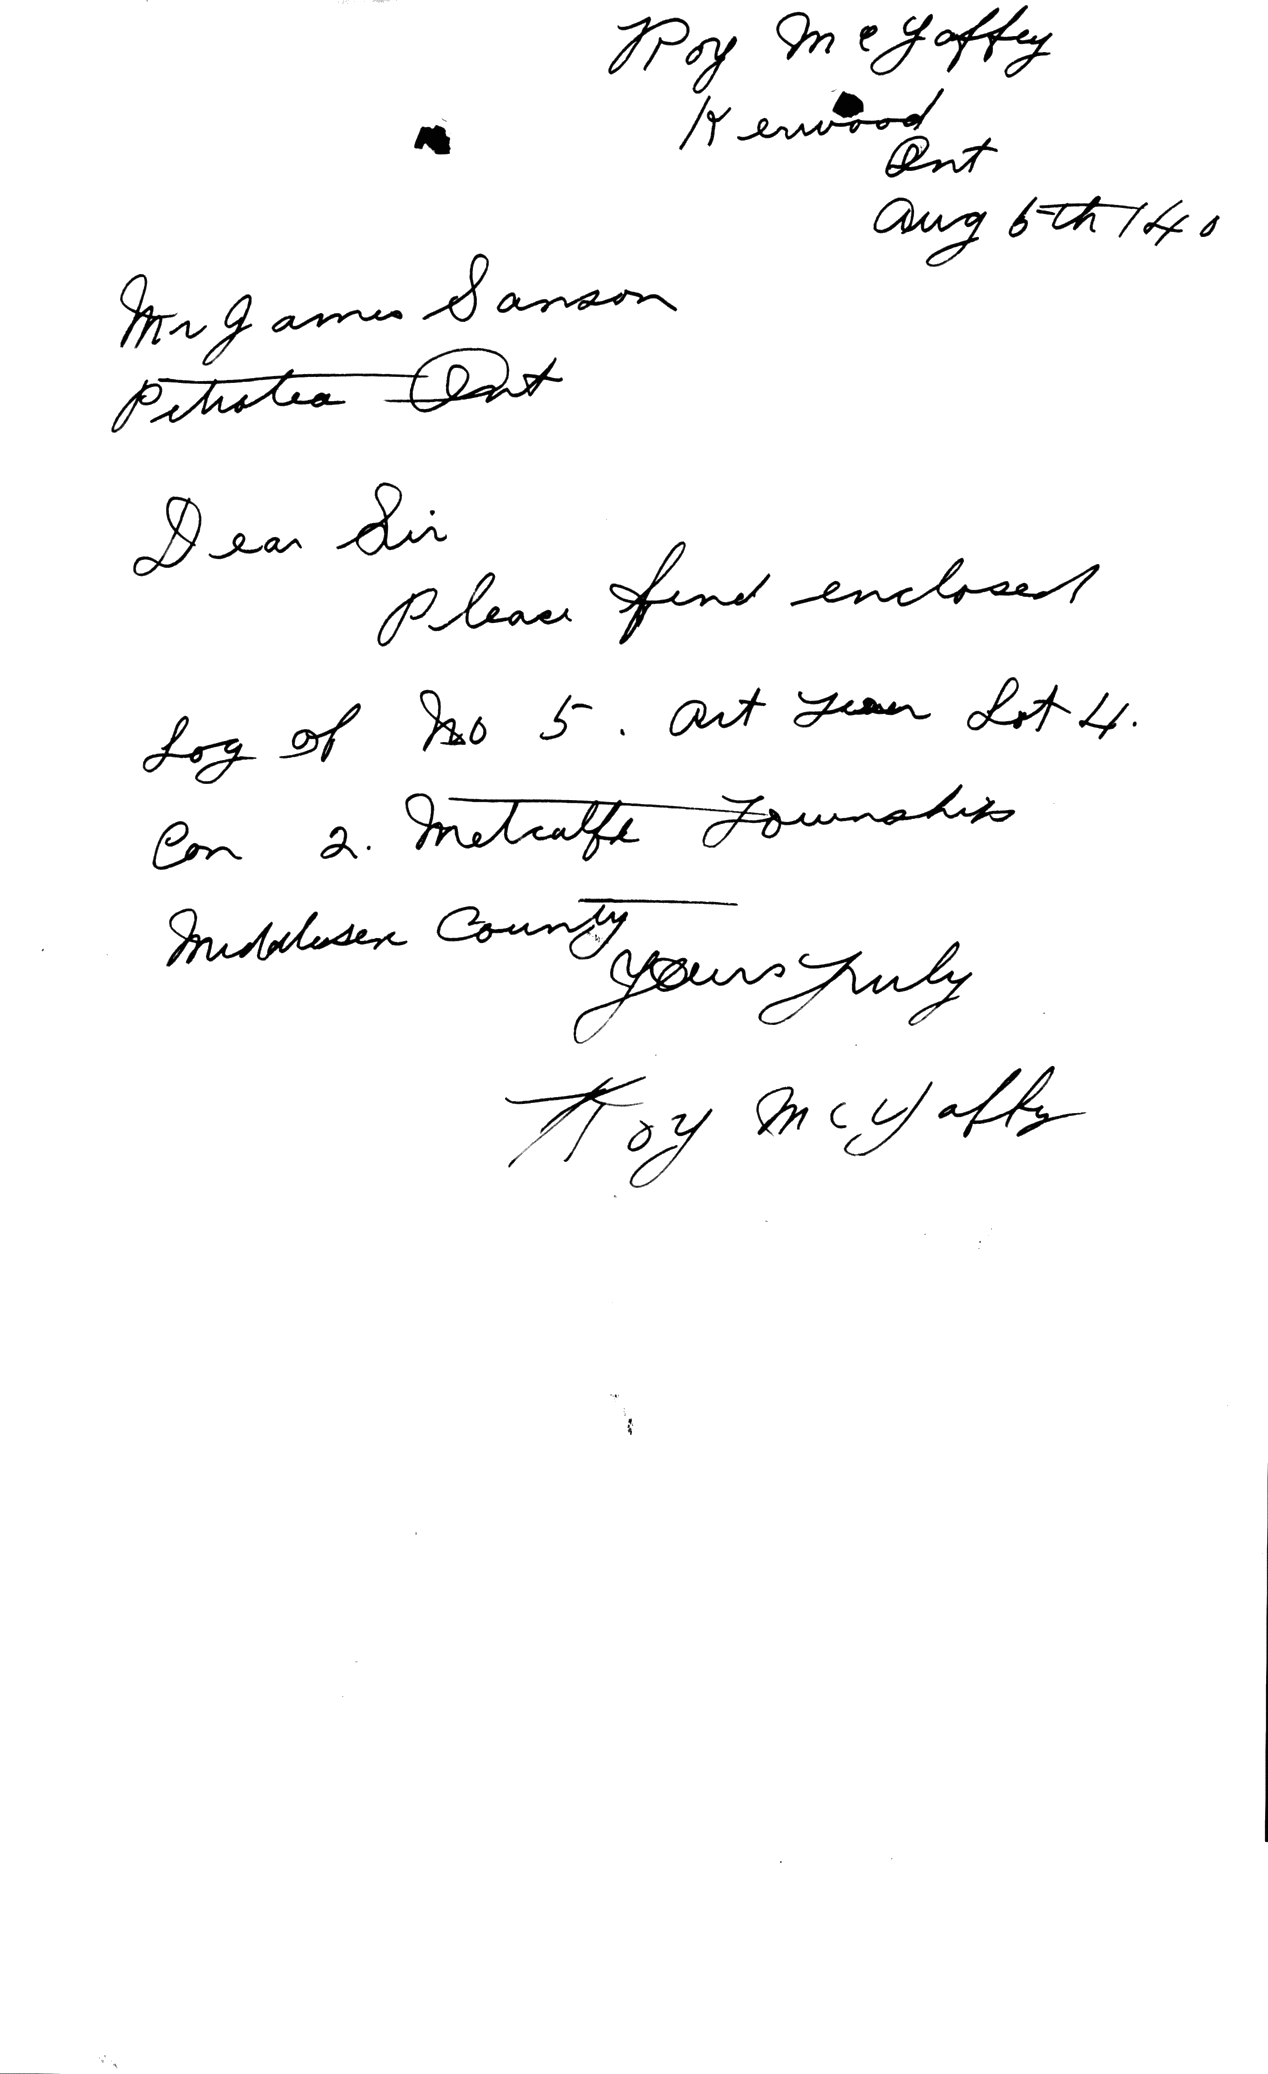 Roy McGaffey
Kerwood
Ont
Aug 6th /40
Mr James Sanson
Petrolea Ont
Dear Sir
Please find enclosed
Log of No 5. Art Lot 4.
Con 2. Metcalfe Township
Middlesex County
Yours Truly
Roy McGaffey